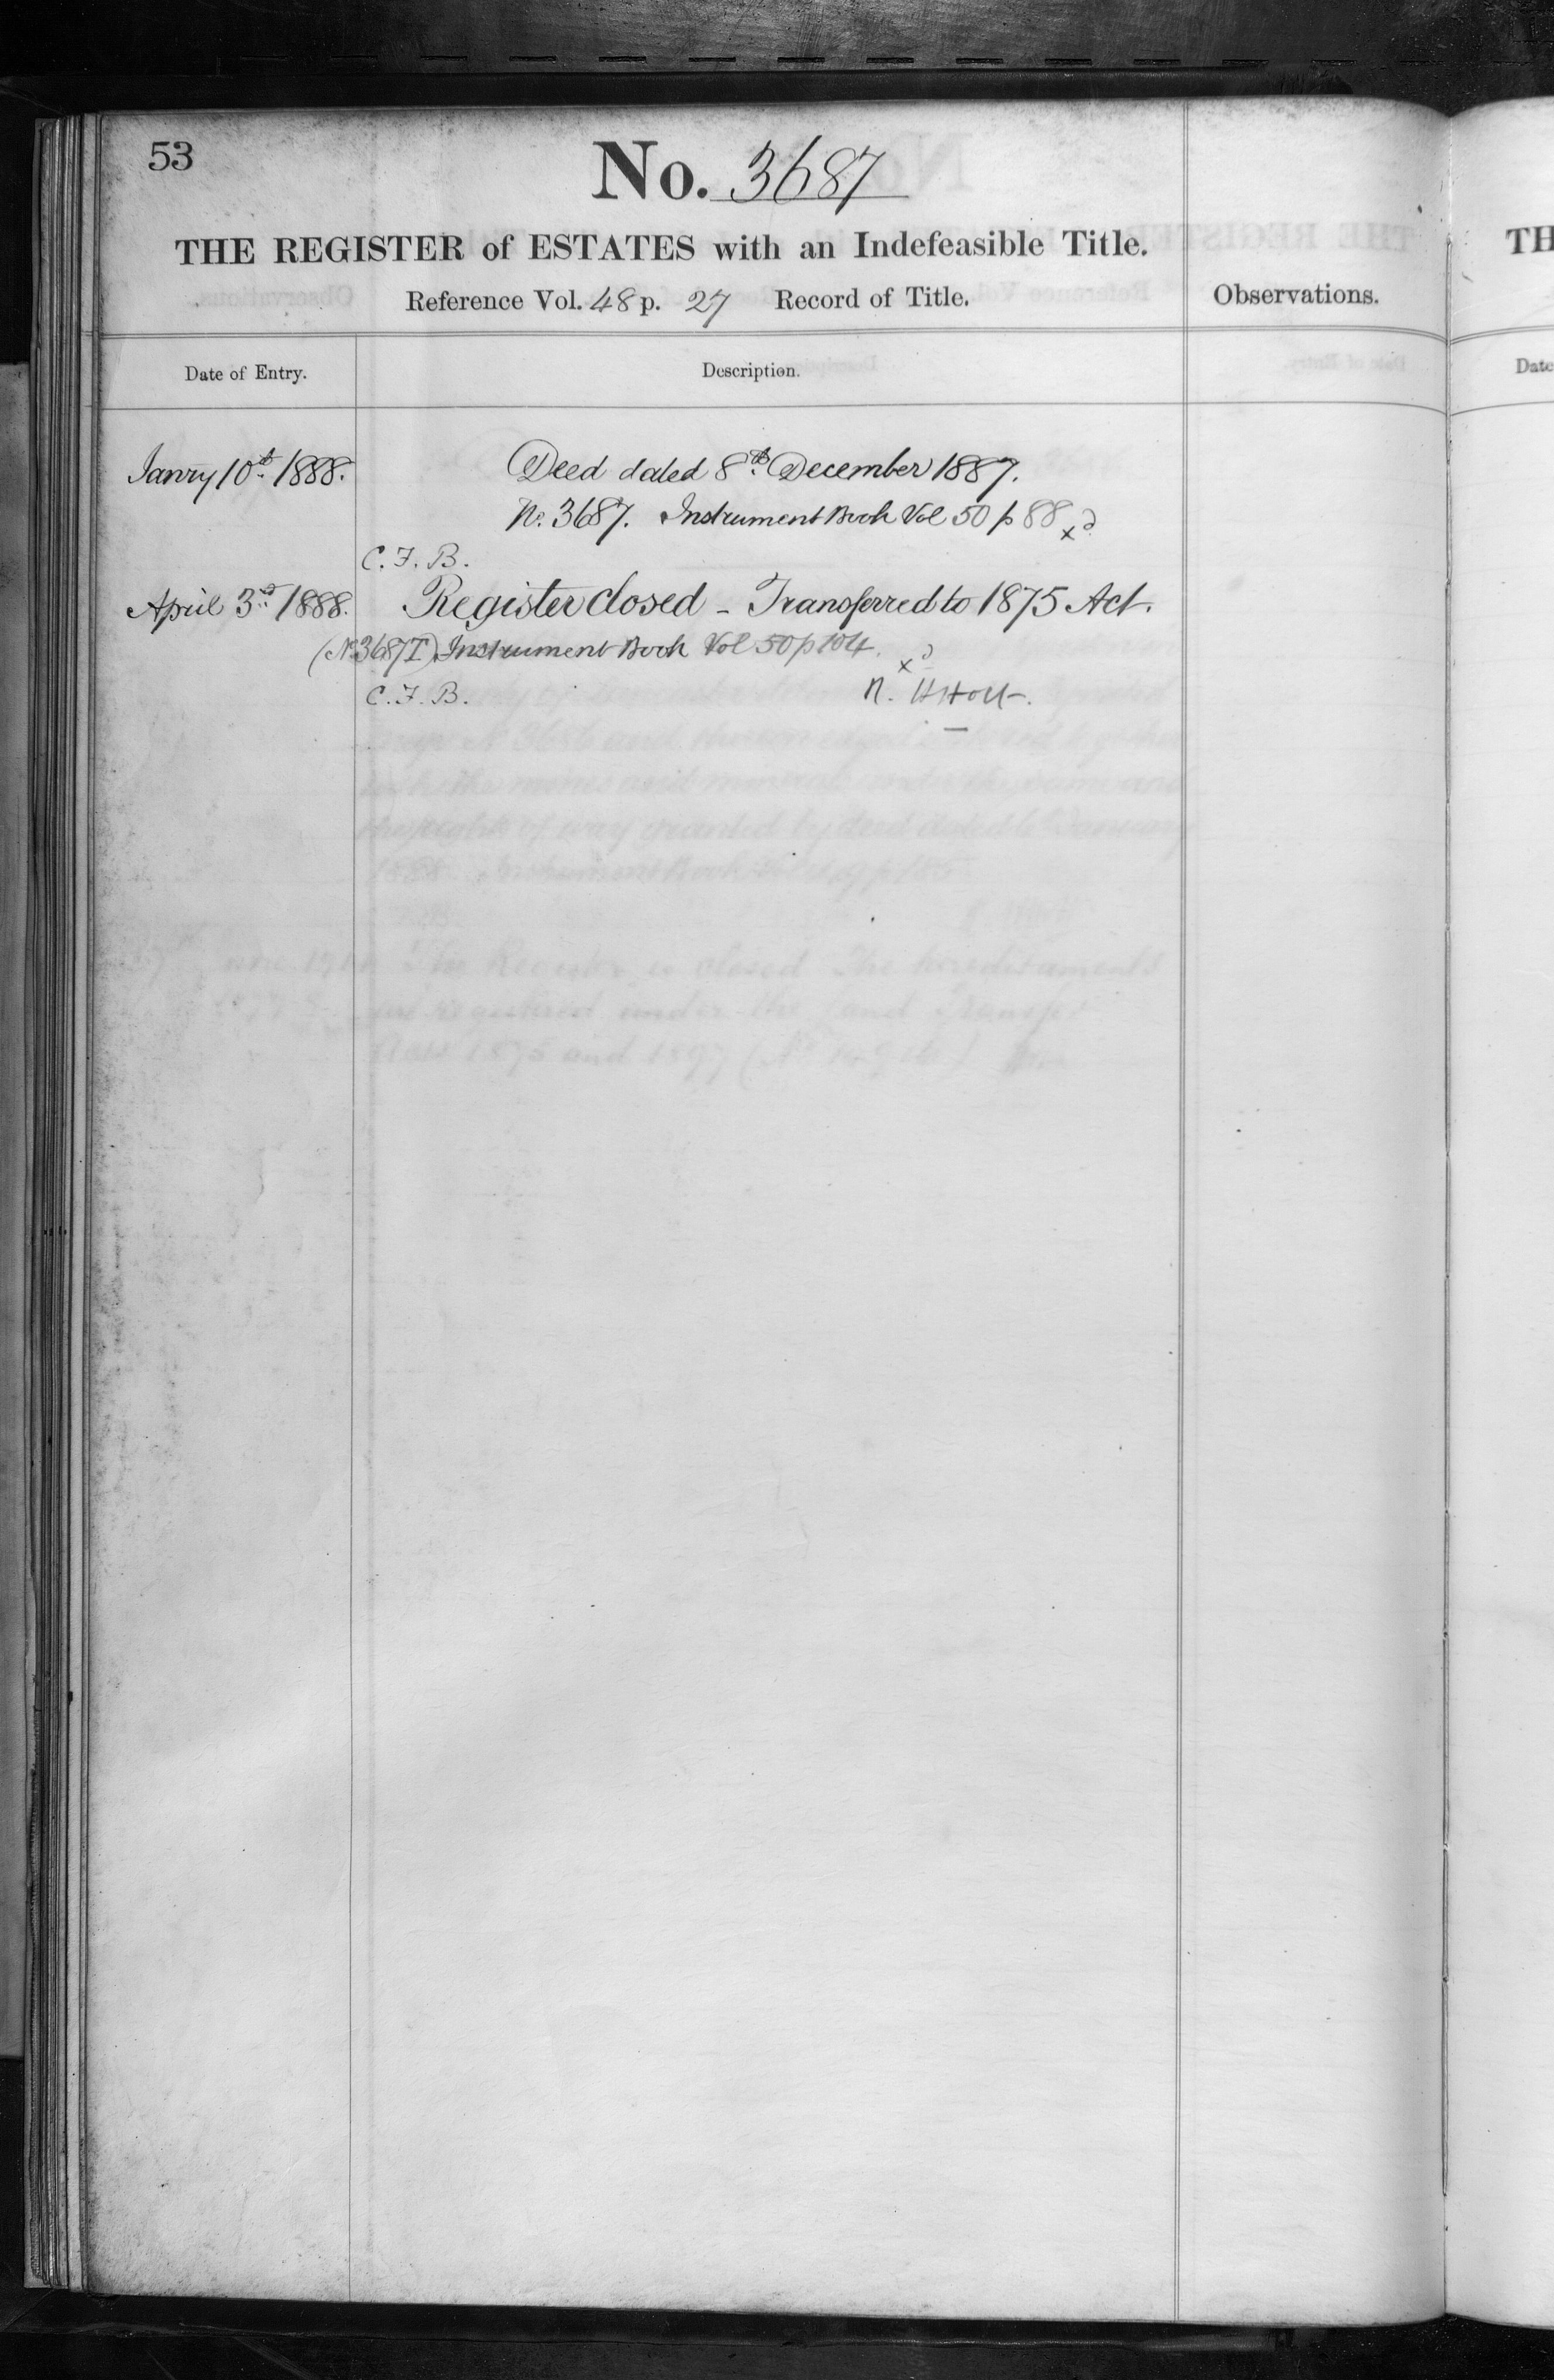 53
No. 3687
THE REGISTER of ESTATES with an Indefeasible Title.
Reference Vol. 48 p. 27 Record of Title.
Observations.
Date of Entry.
Description.
Janry 10th 1888.
Deed dated 8th December 1887.
No. 3687. Instrument Book Vol 50 p 88 xd
C. F. B.
April 3rd 1888.
Register closed - Transferred to 1875 Act.
(No 3687T) Instrument Book Vol 50 p 104. xd
C. F. B.
N. H Holt.
TH
Date